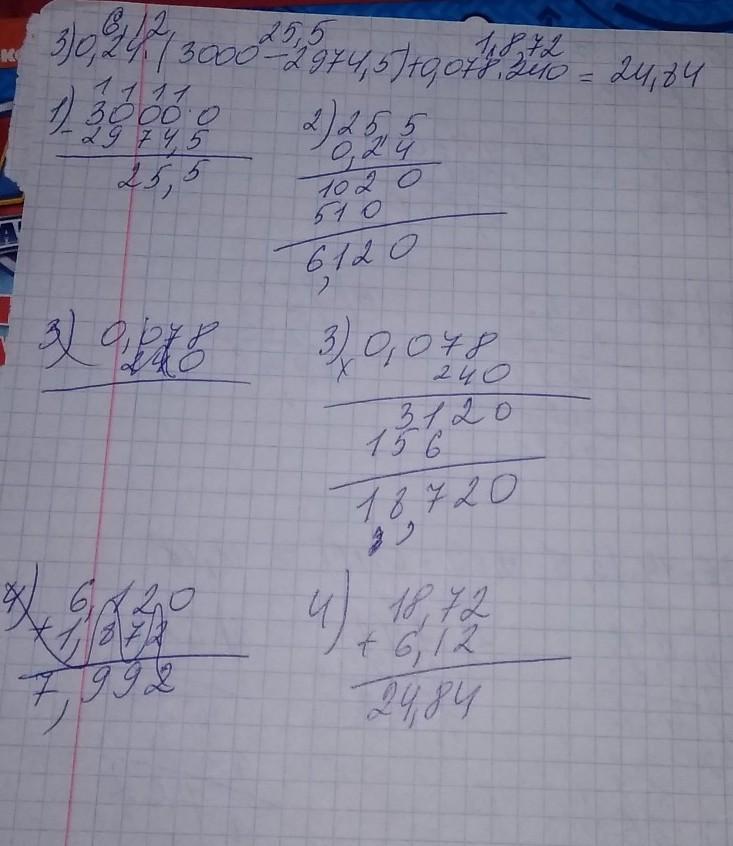 6,12 25,5 1,8,72
3) 0,24·(3000-2974,5)+0,078·240 = 24,84
1 1 1 1
1) 3000·0
- 29 74,5
25,5
2) 25,5
0,24
1020
510
6,120
3) 0,078
240
3) 0,078
x 240
3120
156
18,720
4) 6,120
+ 1,872
7,992
4) 18,72
+ 6,12
24,84